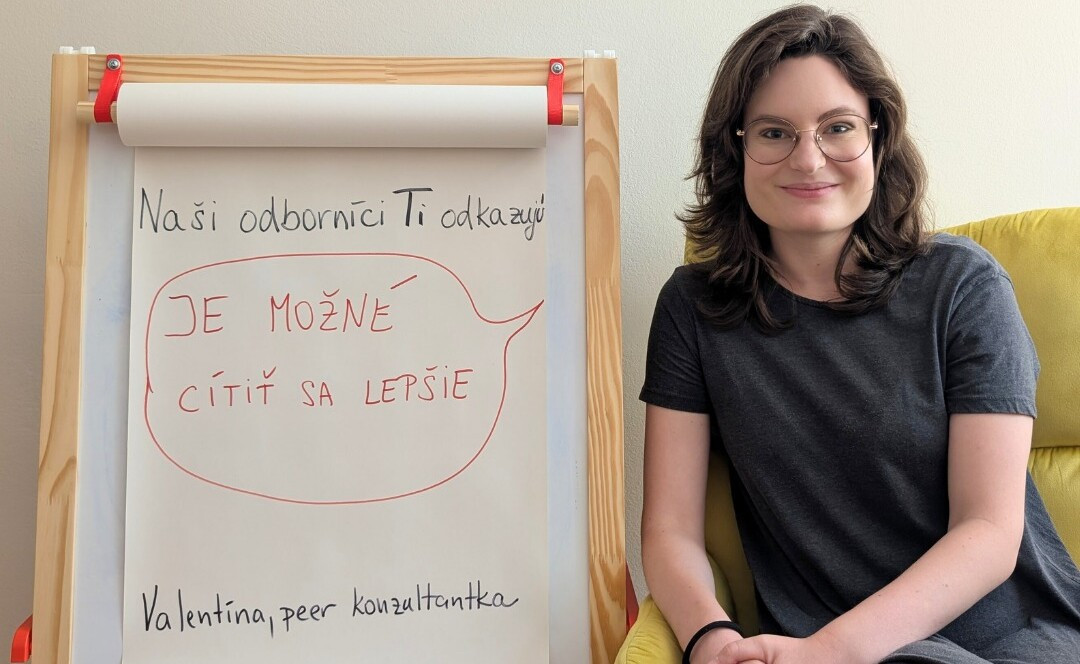 Naši odborníci Ti odkazujú
JE MOŽNÉ
CÍTIŤ SA LEPŠIE
Valentína, peer konzultantka